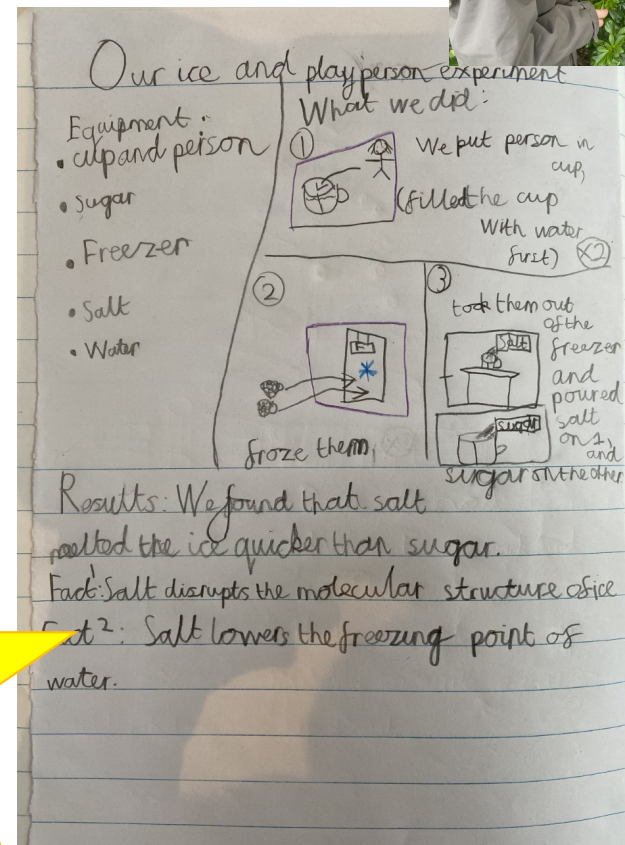 Our ice and playperson experiment
Equipment:
• cup and person
• sugar
• Freezer
• Salt
• Water
What we did:
①
We put person in
cup,
(filled the cup
with water
first) x2
②
froze them,
③
took them out
of the
freezer
and
poured
salt
on 1,
and
sugar on the other
Salt
sugar
Results: We found that salt
melted the ice quicker than sugar.
Fact¹: Salt disrupts the molecular structure of ice
Fact²: Salt lowers the freezing point of
water.